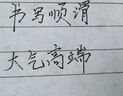 书写顺谓
大气高端